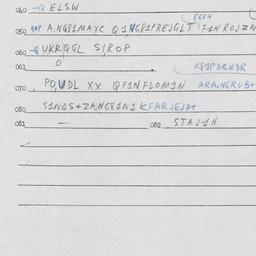 040 -Q ELSW
P664
050 A.NG81MAYC Q1NG81PREJGLT F1NROJZN
060 -QUKRQGL SJROP
061 O K81P3RN3R
070 PO,UDL XX QF1NFLOM1N ARA,NGRUB+
080 S1NGS+ZA,NG81NJ KFARJEJD+
081 — 082 STAJ1N